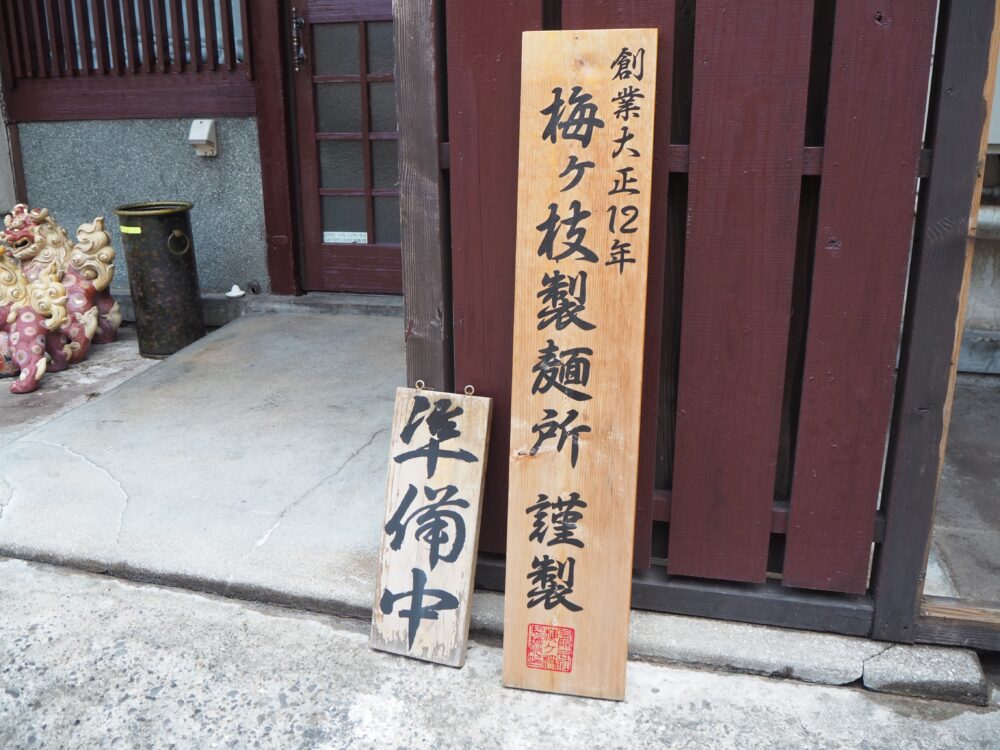 創業大正12年
梅ヶ枝製麺所 謹製
準備中